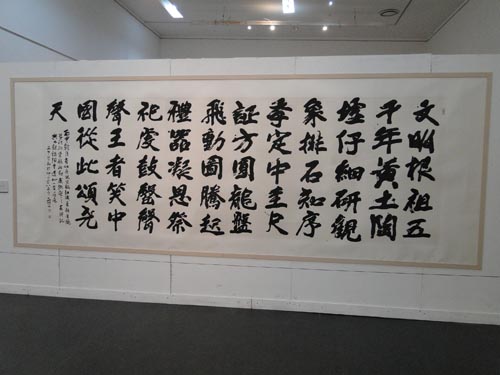 文明根祖五
千年黄土陶
壇仔細研觀
象排石知序
定中圭尺
証方圓龍盤
飛動圖騰起
禮器凝思祭
祀虔鼓磬聲
聲王者笑中
國從此頌堯
天